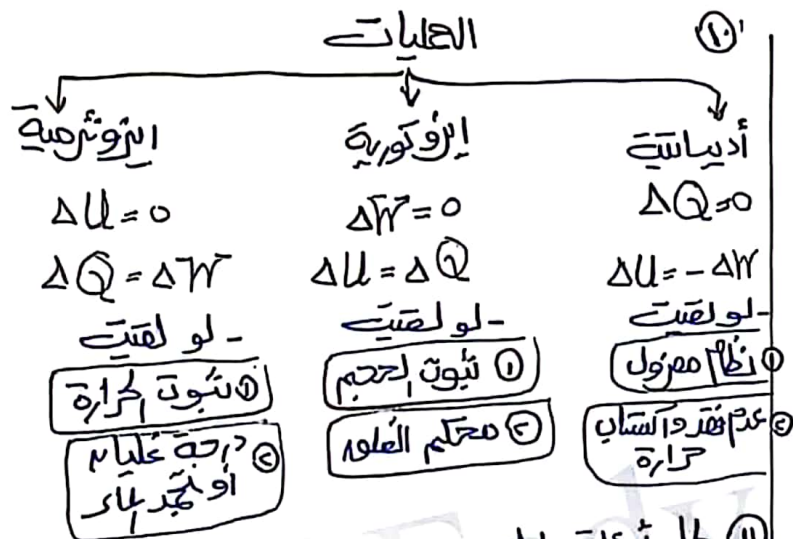 ⑩ العمليات
أديباتية
ΔQ=0
ΔU=-ΔW
- لو لقيت
① نظام معزول
② عدم فقد واكتساب حرارة
ايزوكورية
ΔW=0
ΔU=ΔQ
- لو لقيت
① ثبوت الحجم
② محكم الغلق
ايزوثرمية
ΔU=0
ΔQ=ΔW
- لو لقيت
① ثبوت الحرارة
② درجة غليان
أو تجمد الماء
⑪